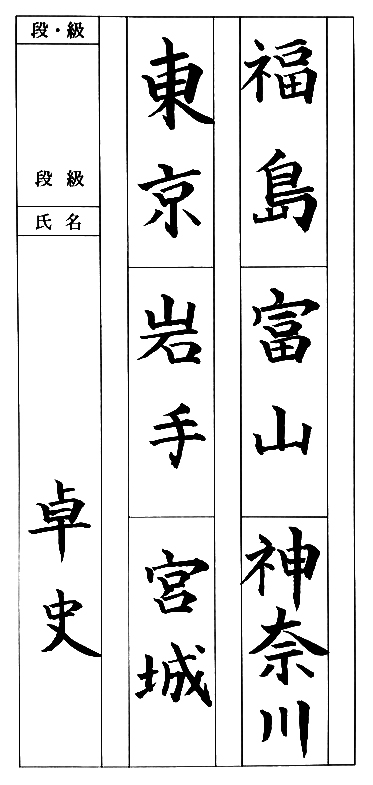 福島
富山
神奈川
東京
岩手
宮城
段・級
段 級
氏 名
卓史